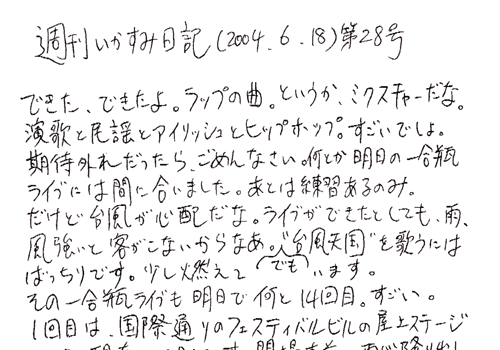 週刊いかすみ日記(2004.6.18)第28号
できた、できたよ。ラップの曲。というか、ミクスチャーだな。
演歌と民謡とアイリッシュとヒップホップ。すごいでしょ。
期待外れだったら、ごめんなさい。何とか明日の一合瓶
ライブには間に合いました。あとは練習あるのみ。
だけど台風が心配だな。ライブができたとしても、雨、
風強いと客がこないからなあ。"台風天国"を歌うには
ばっちりです。少し燃えて(でも)います。
その一合瓶ライブも明日で何と14回目。すごい。
1回目は、国際通りのフェスティバルビルの屋上ステージ